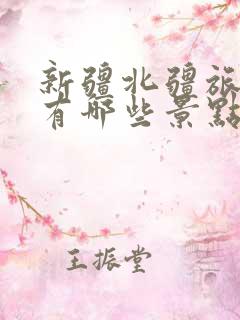 新疆北疆旅
有哪些景點
王振堂